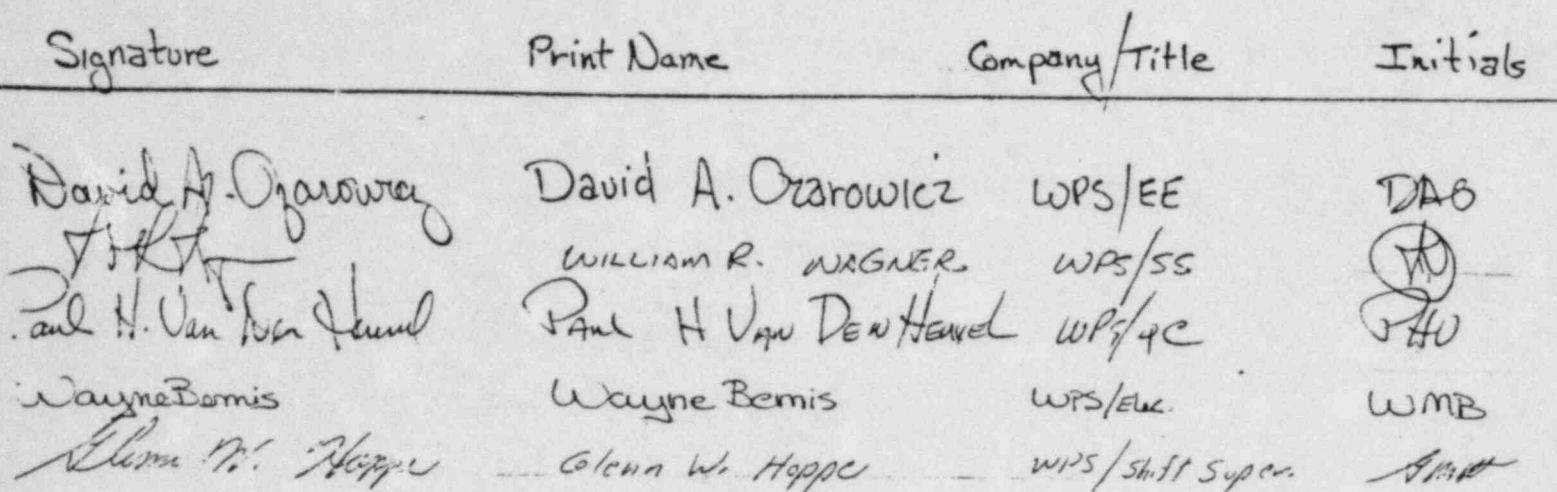 Signature Print Name Company/Title Initials
David A. Ozarowicz David A. Ozarowicz WPS/EE DAO
WILLIAM R. WAGNER WPS/SS
Paul H. Van Den Heuvel Paul H Van Den Heuvel WPS/QC PHV
Wayne Bemis Wayne Bemis WPS/Elec. WMB
Glenn W. Hoppe Glenn W. Hoppe WPS/Shift Super.